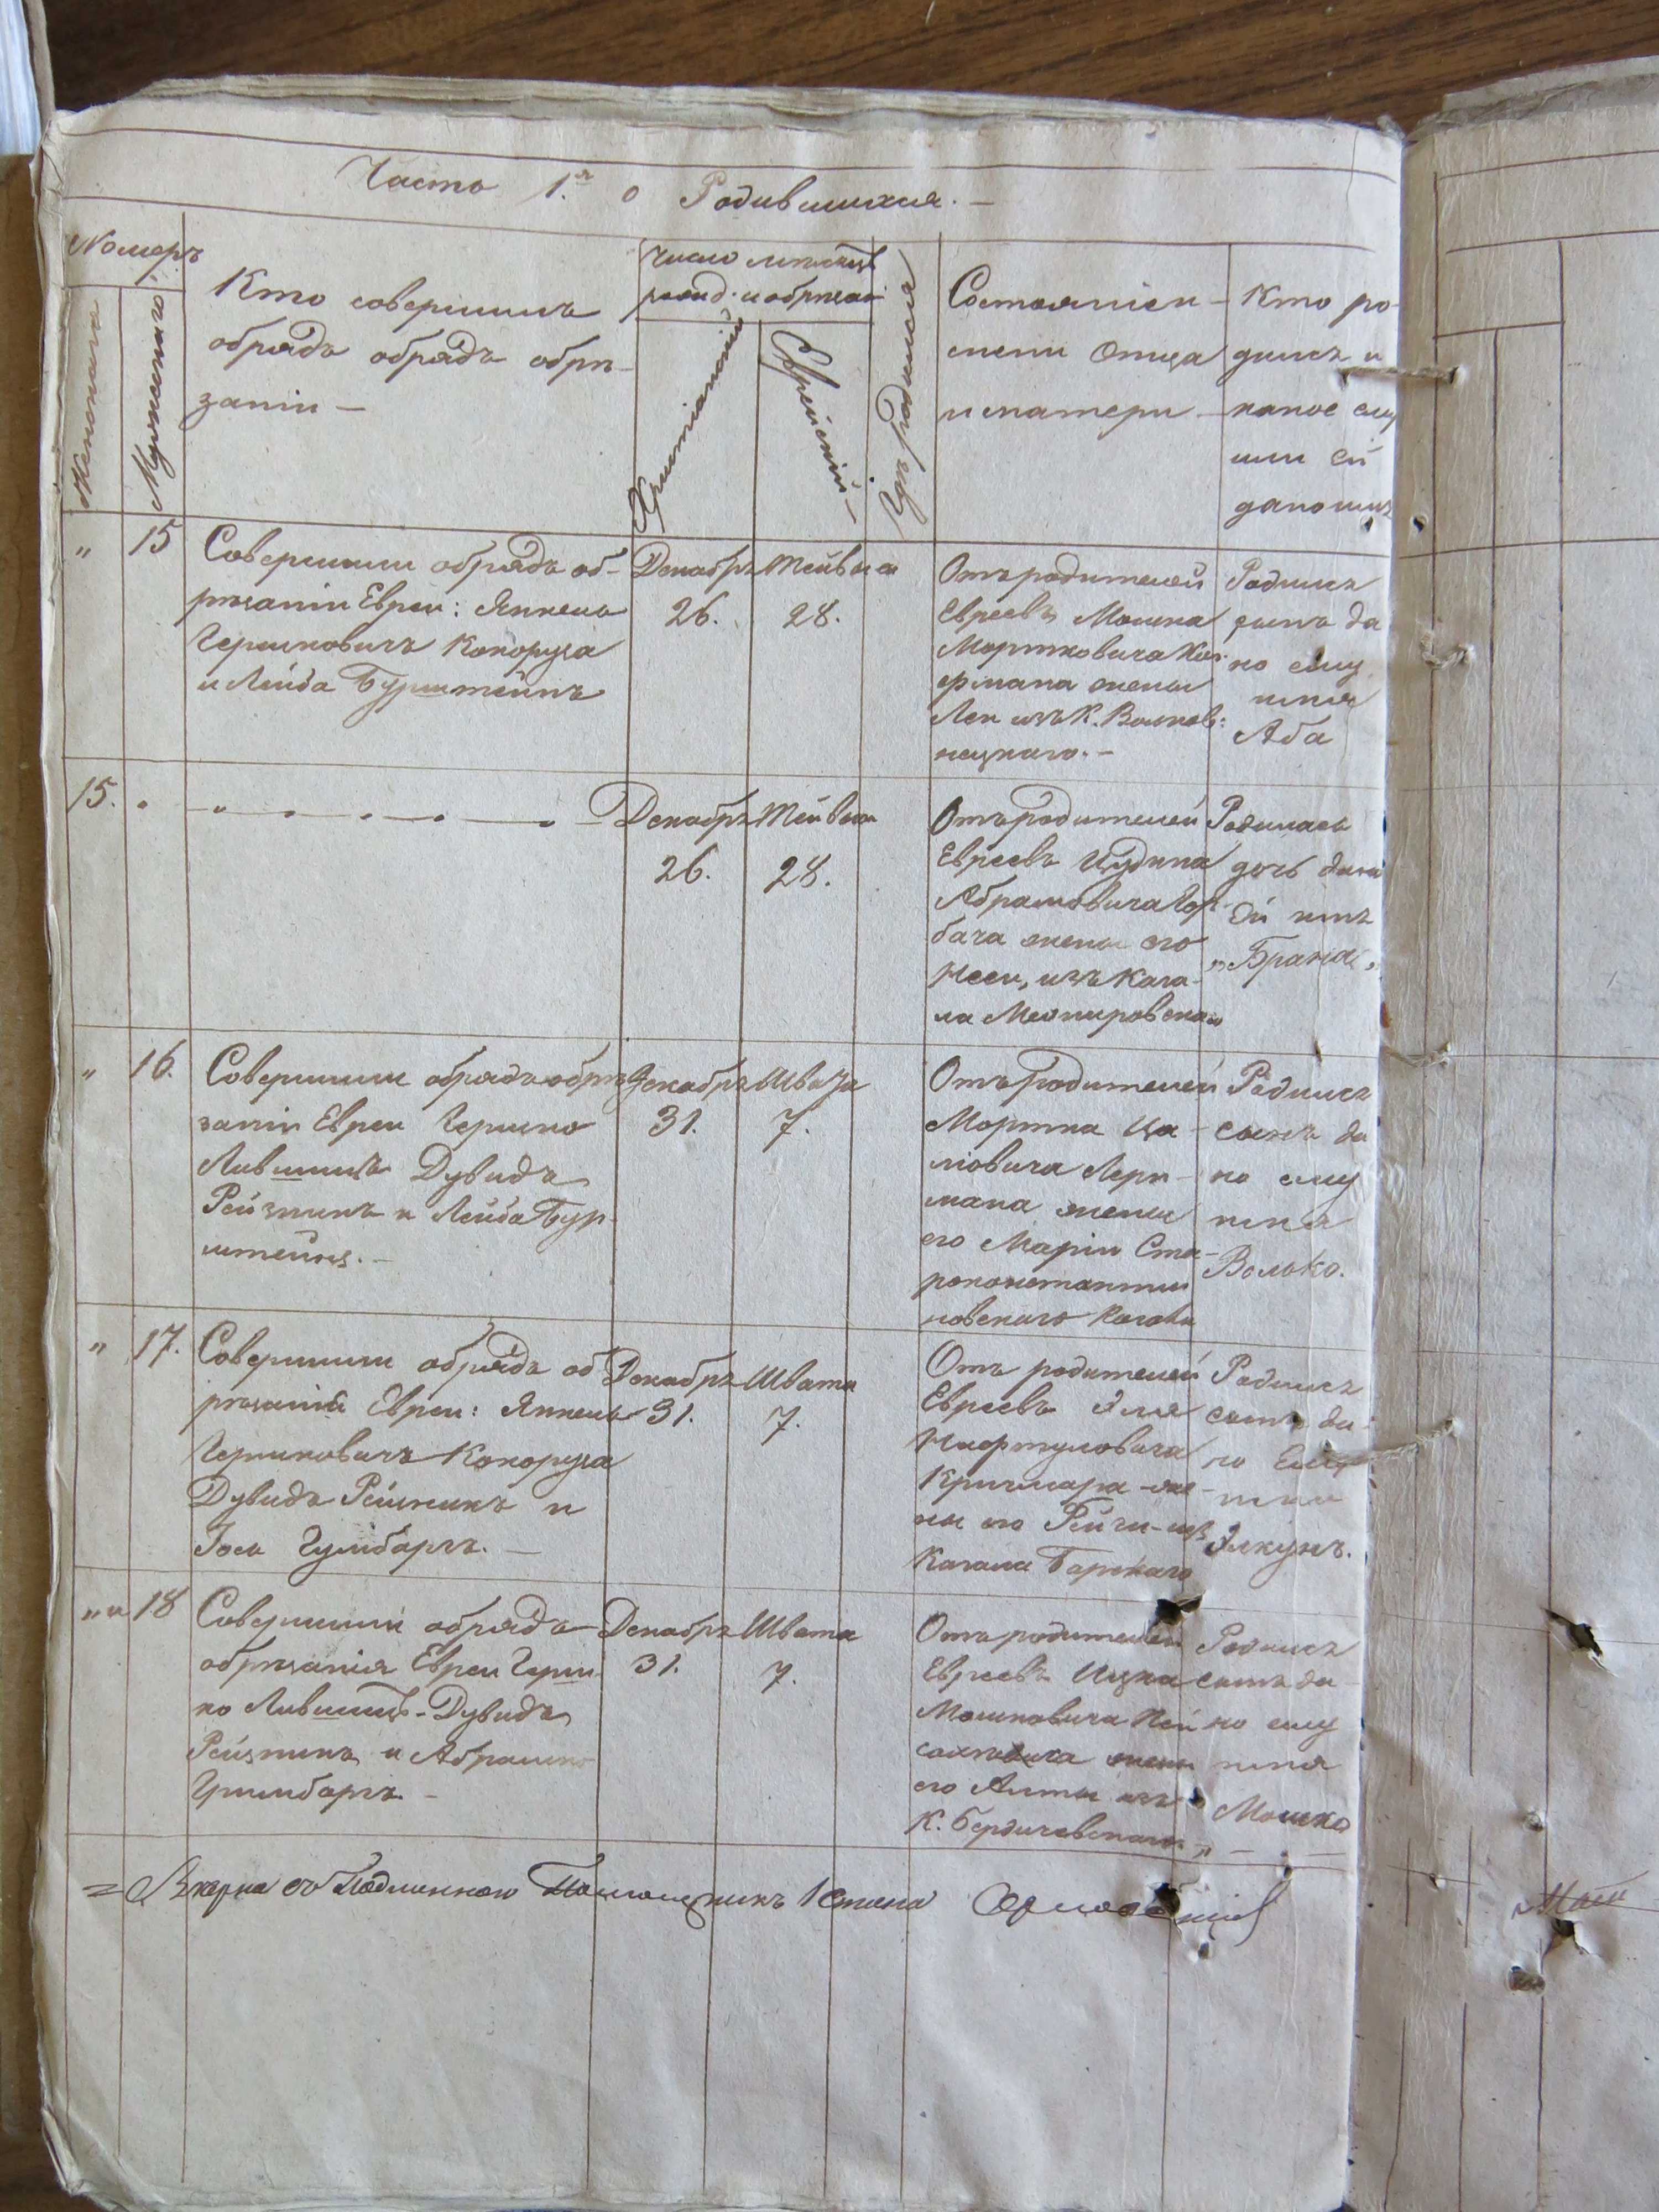 Часть 1.я о Родившихся. —
Номеръ
Женского
Мужеского
Кто совершилъ
обрядъ обрядъ обрѣ-
занiи —
Число мѣсяцъ
рожд. и обрѣзан
Христианский
Еврейскiй —
Гдѣ родился
Состоянiе и
имени Отца
и матери
Кто ро-
дился и
какое ему
или ей
дано имя
" 15
Совершили обрядъ об-
рѣзанiи Евреи: Янкель
Гершковичъ Конопуха
и Лейба Бурштейнъ
Декабрь
26.
Тейвыса
28.
Отъ родителей
Евреевъ Мошка
Мортковича
фмана жены
Леи изъ К. Волков:
нецкаго. —
Родился
сынъ да
но ему
имя
Аба
15.
Декабрь
26.
Тейвыса
28.
Отъ родителей
Евреевъ Иудина
Абрамовича Гор-
бача жены его
Неси, изъ Кага-
ла Межировскаго
Родилась
дочь дана
Ей имя
„Брана„
" 16.
Совершили обрядъ обрѣ
занiи Евреи Гершко
Лившицъ Дувидъ
Рейзникъ и Лейба Бур-
штейнъ. —
Декабрь
31.
Швата
7.
Отъ Родителей
Мортка
мана жены
его Марiи Ста-
роконстанти
новскаго Кагала
Родился
сынъ да
но ему
имя
Волько.
" 17.
Совершили обрядъ об
рѣзанiя Евреи: Янкель
Гершковичъ Конопуха
Дувидъ Рейзникъ и
Iось Гринбаргъ. —
Декабрь
31.
Швата
7.
Отъ родителей
Евреевъ Эля
Нафтуловича
Кричмара же-
ны его Рейзи изъ
Кагала Барскаго
Родился
сынъ да-
но Ему
имя
Элкунъ.
" " 18
Совершили обрядъ
обрѣзанiя Евреи Герш
ко Лившицъ - Дувидъ
Рейзникъ и Абрамко
Гринбаргъ. —
Декабрь
31.
Швата
7.
Отъ родителей
Евреевъ Ицка
Мошковича
жены
его Алты изъ
К. Бердичевскаго
Родился
сынъ да
но ему
имя
Мошко
Вѣрна съ Подлинною Помощникъ 1 Стана